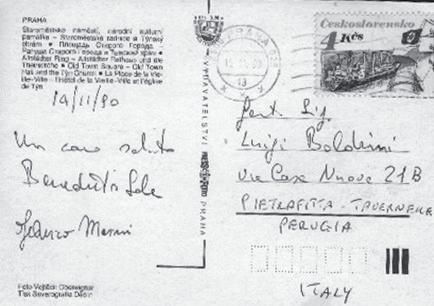 PRAHA
Staroměstské náměstí, národní kulturní
památka – Staroměstská radnice a Týnský
chrám • Площадь Старого Города,
Altstädter Ring – Altstädter Rathaus und die
Theinkirche • Old Town Square – Old Town
Hall and the Týn Church • La Place de la Vie-
ille-Ville – l'Hôtel de la Vieille-Ville et l'église
de Týn
14/11/90
Un caro saluto
Benedetti
Foto Vojtěch Obereigner
Tisk Severografia Děčín
VYDAVATELSTVÍ
PRAHA
PRAHA
13
Československo
4 Kčs
Gent. Sig.
Luigi Boldrini
Via Case Nuove 21B
PIETRAFITTA - TAVERNELLE
PERUGIA
ITALY